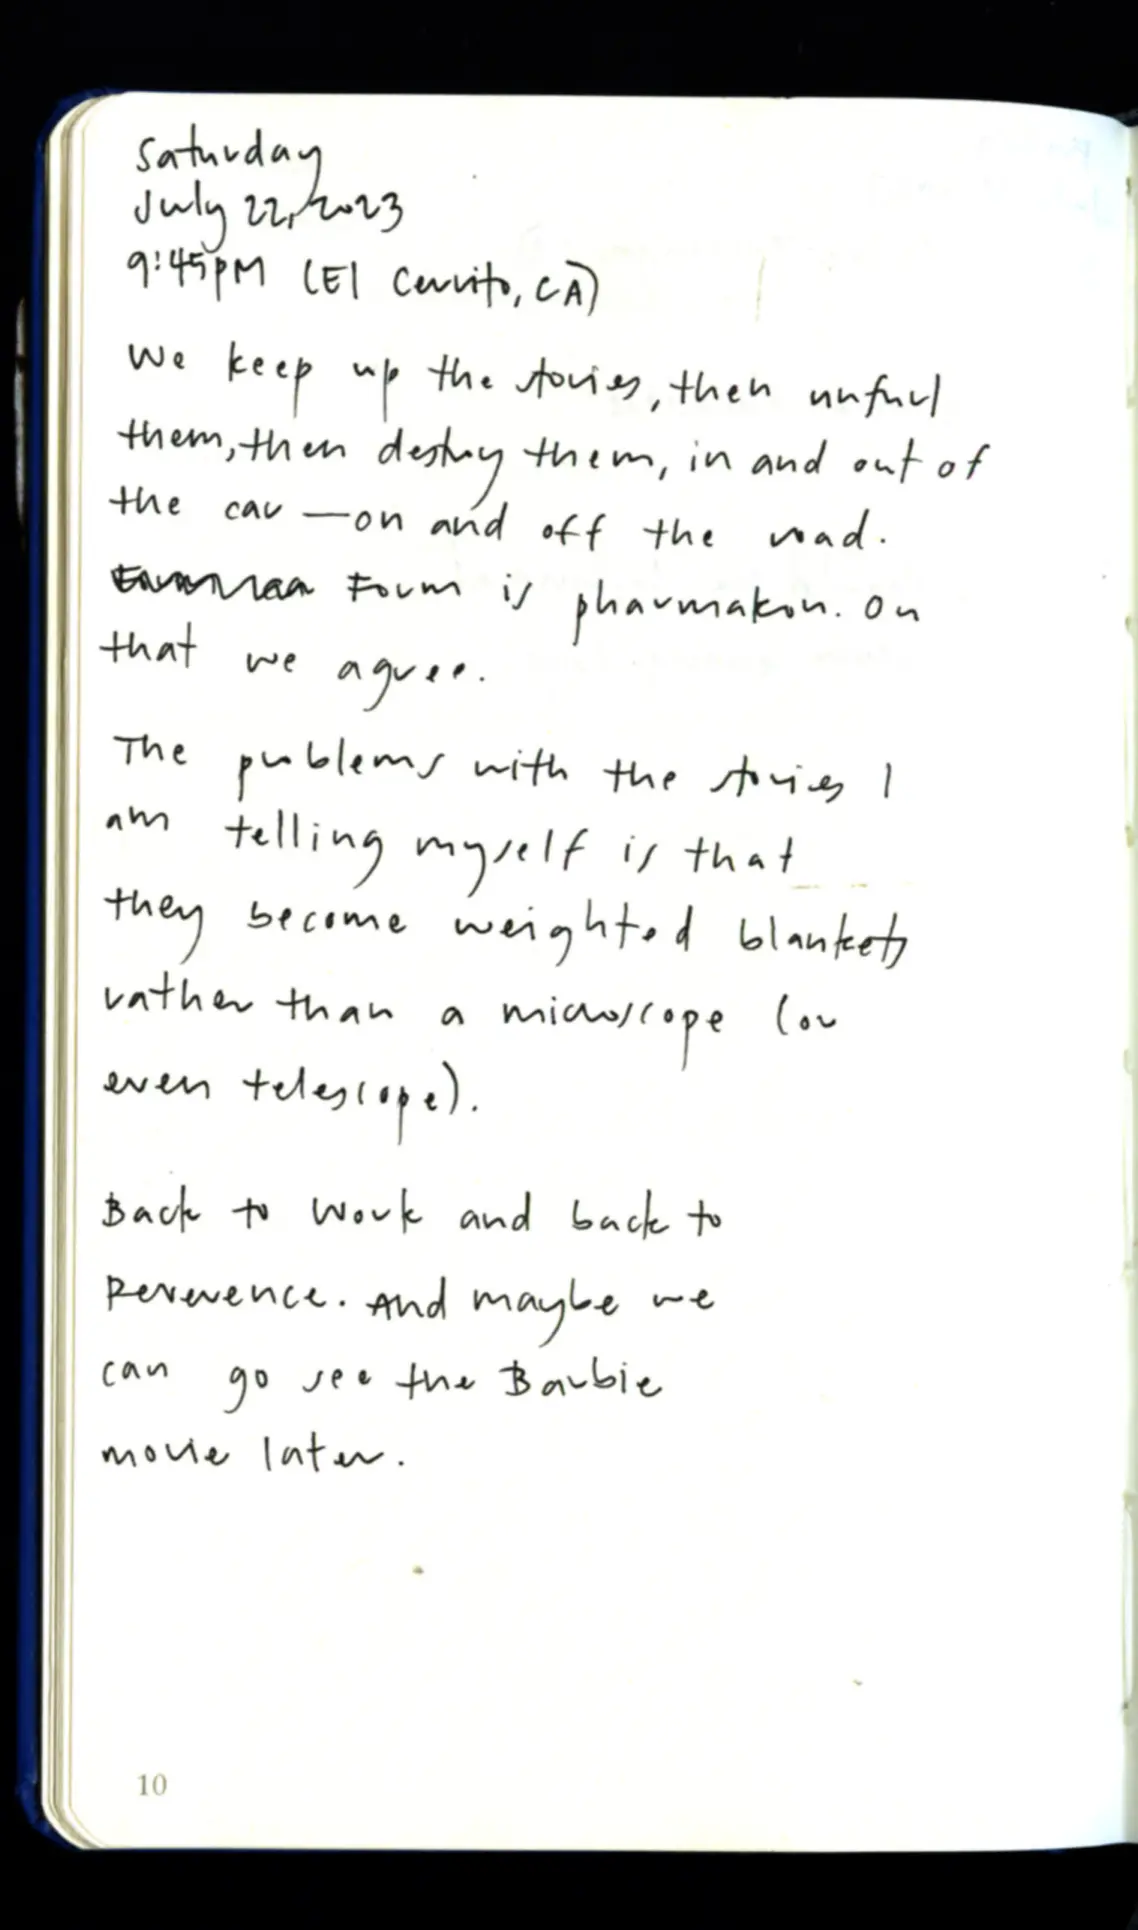 Saturday
July 22, 2023
9:45PM (El Cerrito, CA)
We keep up the stories, then unfurl
them, then destroy them, in and out of
the car — on and off the road.
Form is pharmakon. On
that we agree.
The problems with the stories I
am telling myself is that
they become weighted blankets
rather than a microscope (or
even telescope).
Back to work and back to
Reverence. And maybe we
can go see the Barbie
movie later.
10